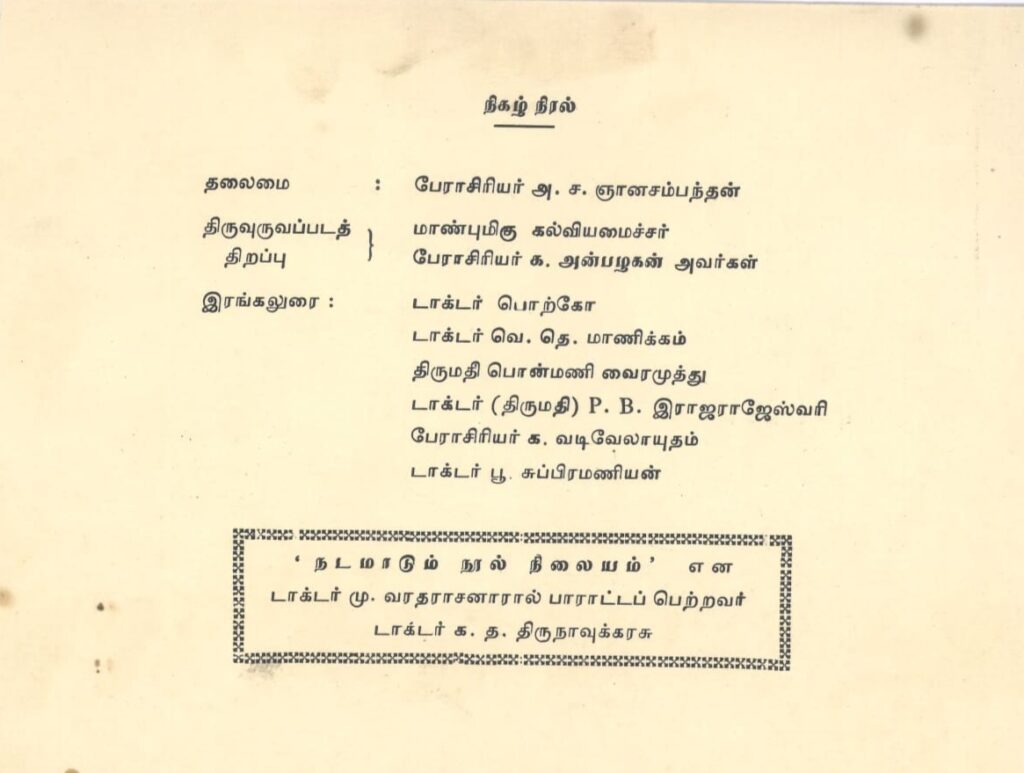 நிகழ் நிரல்
தலைமை : பேராசிரியர் அ. ச. ஞானசம்பந்தன்
திருவுருவப்படத் } மாண்புமிகு கல்வியமைச்சர்
திறப்பு பேராசிரியர் க. அன்பழகன் அவர்கள்
இரங்கலுரை : டாக்டர் பொற்கோ
டாக்டர் வெ. தெ. மாணிக்கம்
திருமதி பொன்மணி வைரமுத்து
டாக்டர் (திருமதி) P. B. இராஜராஜேஸ்வரி
பேராசிரியர் க. வடிவேலாயுதம்
டாக்டர் பூ. சுப்பிரமணியன்
‘ நடமாடும் நூல் நிலையம் ’ என
டாக்டர் மு. வரதராசனாரால் பாராட்டப் பெற்றவர்
டாக்டர் க. த. திருநாவுக்கரசு